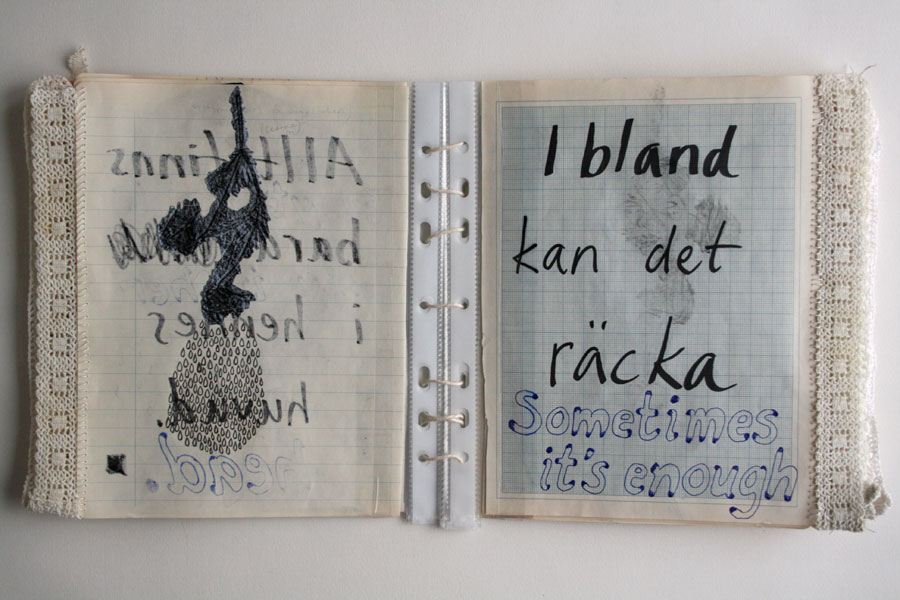 Allt finns
bara
i hennes
huvud.
head.
I bland
kan det
räcka
Sometimes
it's enough